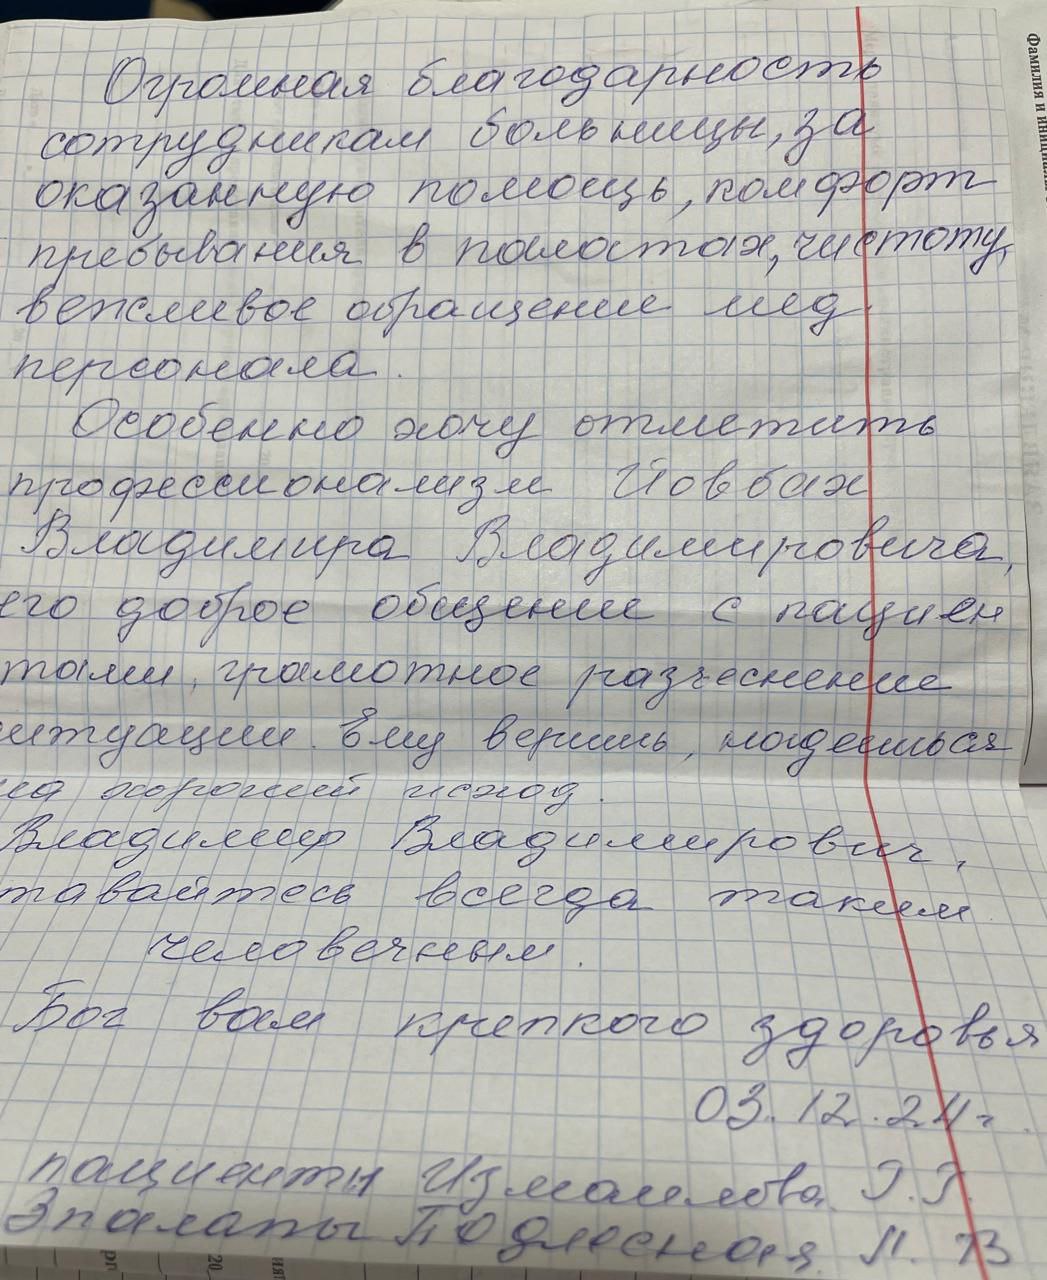 Огромная благодарность
сотрудникам больницы, за
оказанную помощь, комфорт
пребывания в палатах, чистоту,
вежливое обращение мед.
персонала.
Особенно хочу отметить
профессионализм Йовбах
Владимира Владимировича,
его доброе общение с пациен
тами, грамотное разъеснение
итуации. Ему веришь, надеешься
на хороший исход.
Владимир Владимирович,
тавайтесь всегда таким
человечным.
Бог вам крепкого здоровья
03.12.24г.
пациенты Измаилова Г.Г.
3 палаты Подлесная Л. В
Фамилия и инициалы